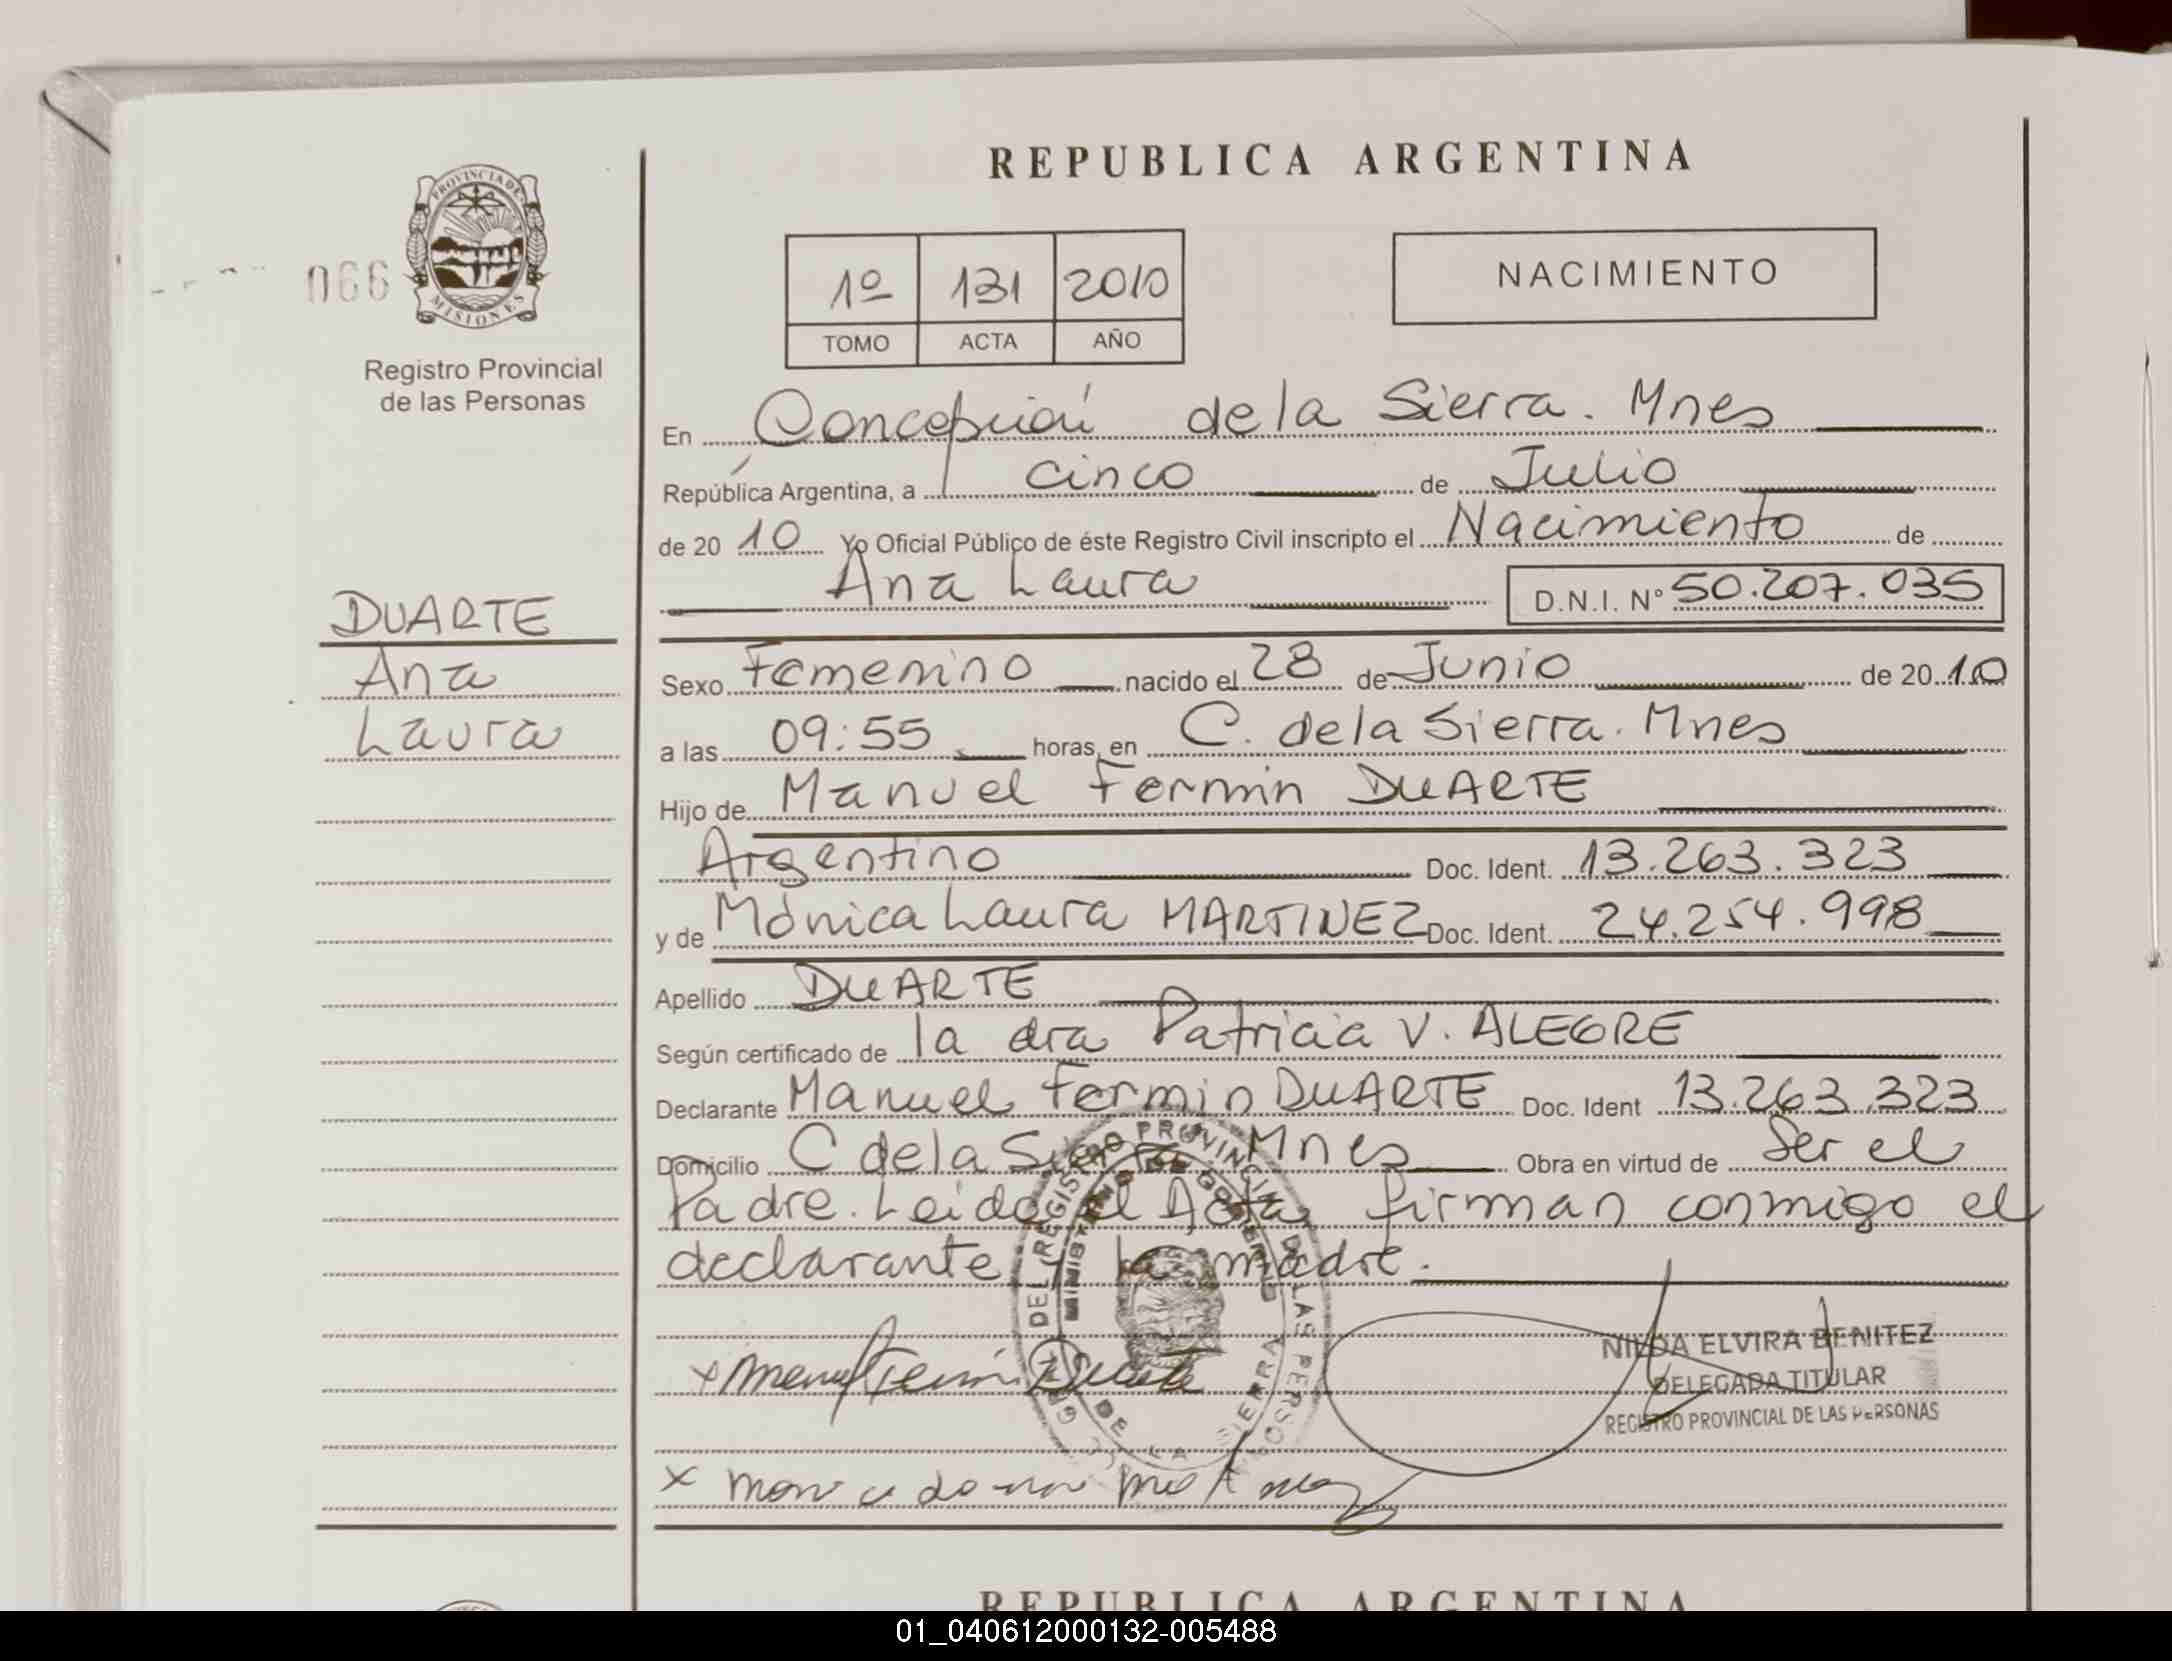 REPUBLICA ARGENTINA
PROVINCIA DE
MISIONES
066
Registro Provincial
de las Personas
1º 131 2010
TOMO ACTA AÑO
NACIMIENTO
En Concepción de la Sierra. Mnes
República Argentina, a cinco de Julio
de 20 10 Yo Oficial Público de éste Registro Civil inscripto el Nacimiento de
Ana Laura D.N.I. Nº 50.207.035
DUARTE
Ana
Laura
Sexo Femenino nacido el 28 de Junio de 20 10
a las 09:55 horas, en C. de la Sierra. Mnes
Hijo de Manuel Fermin DUARTE
Argentino Doc. Ident. 13.263.323
y de Mónica Laura MARTINEZ Doc. Ident. 24.254.998
Apellido DUARTE
Según certificado de la dra Patricia V. ALEGRE
Declarante Manuel Fermin DUARTE Doc. Ident 13.263.323
Domicilio C de la Sierra Mnes Obra en virtud de Ser el
Padre. Leida el Acta firman conmigo el
declarante y la madre.
NILDA ELVIRA BENITEZ
DELEGADA TITULAR
REGISTRO PROVINCIAL DE LAS PERSONAS
REPUBLICA ARGENTINA
01_040612000132-005488